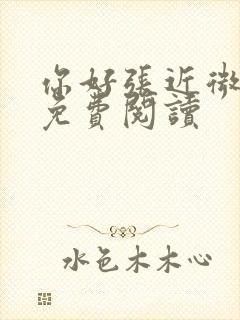 你好張近微
免費閱讀
水色木木心